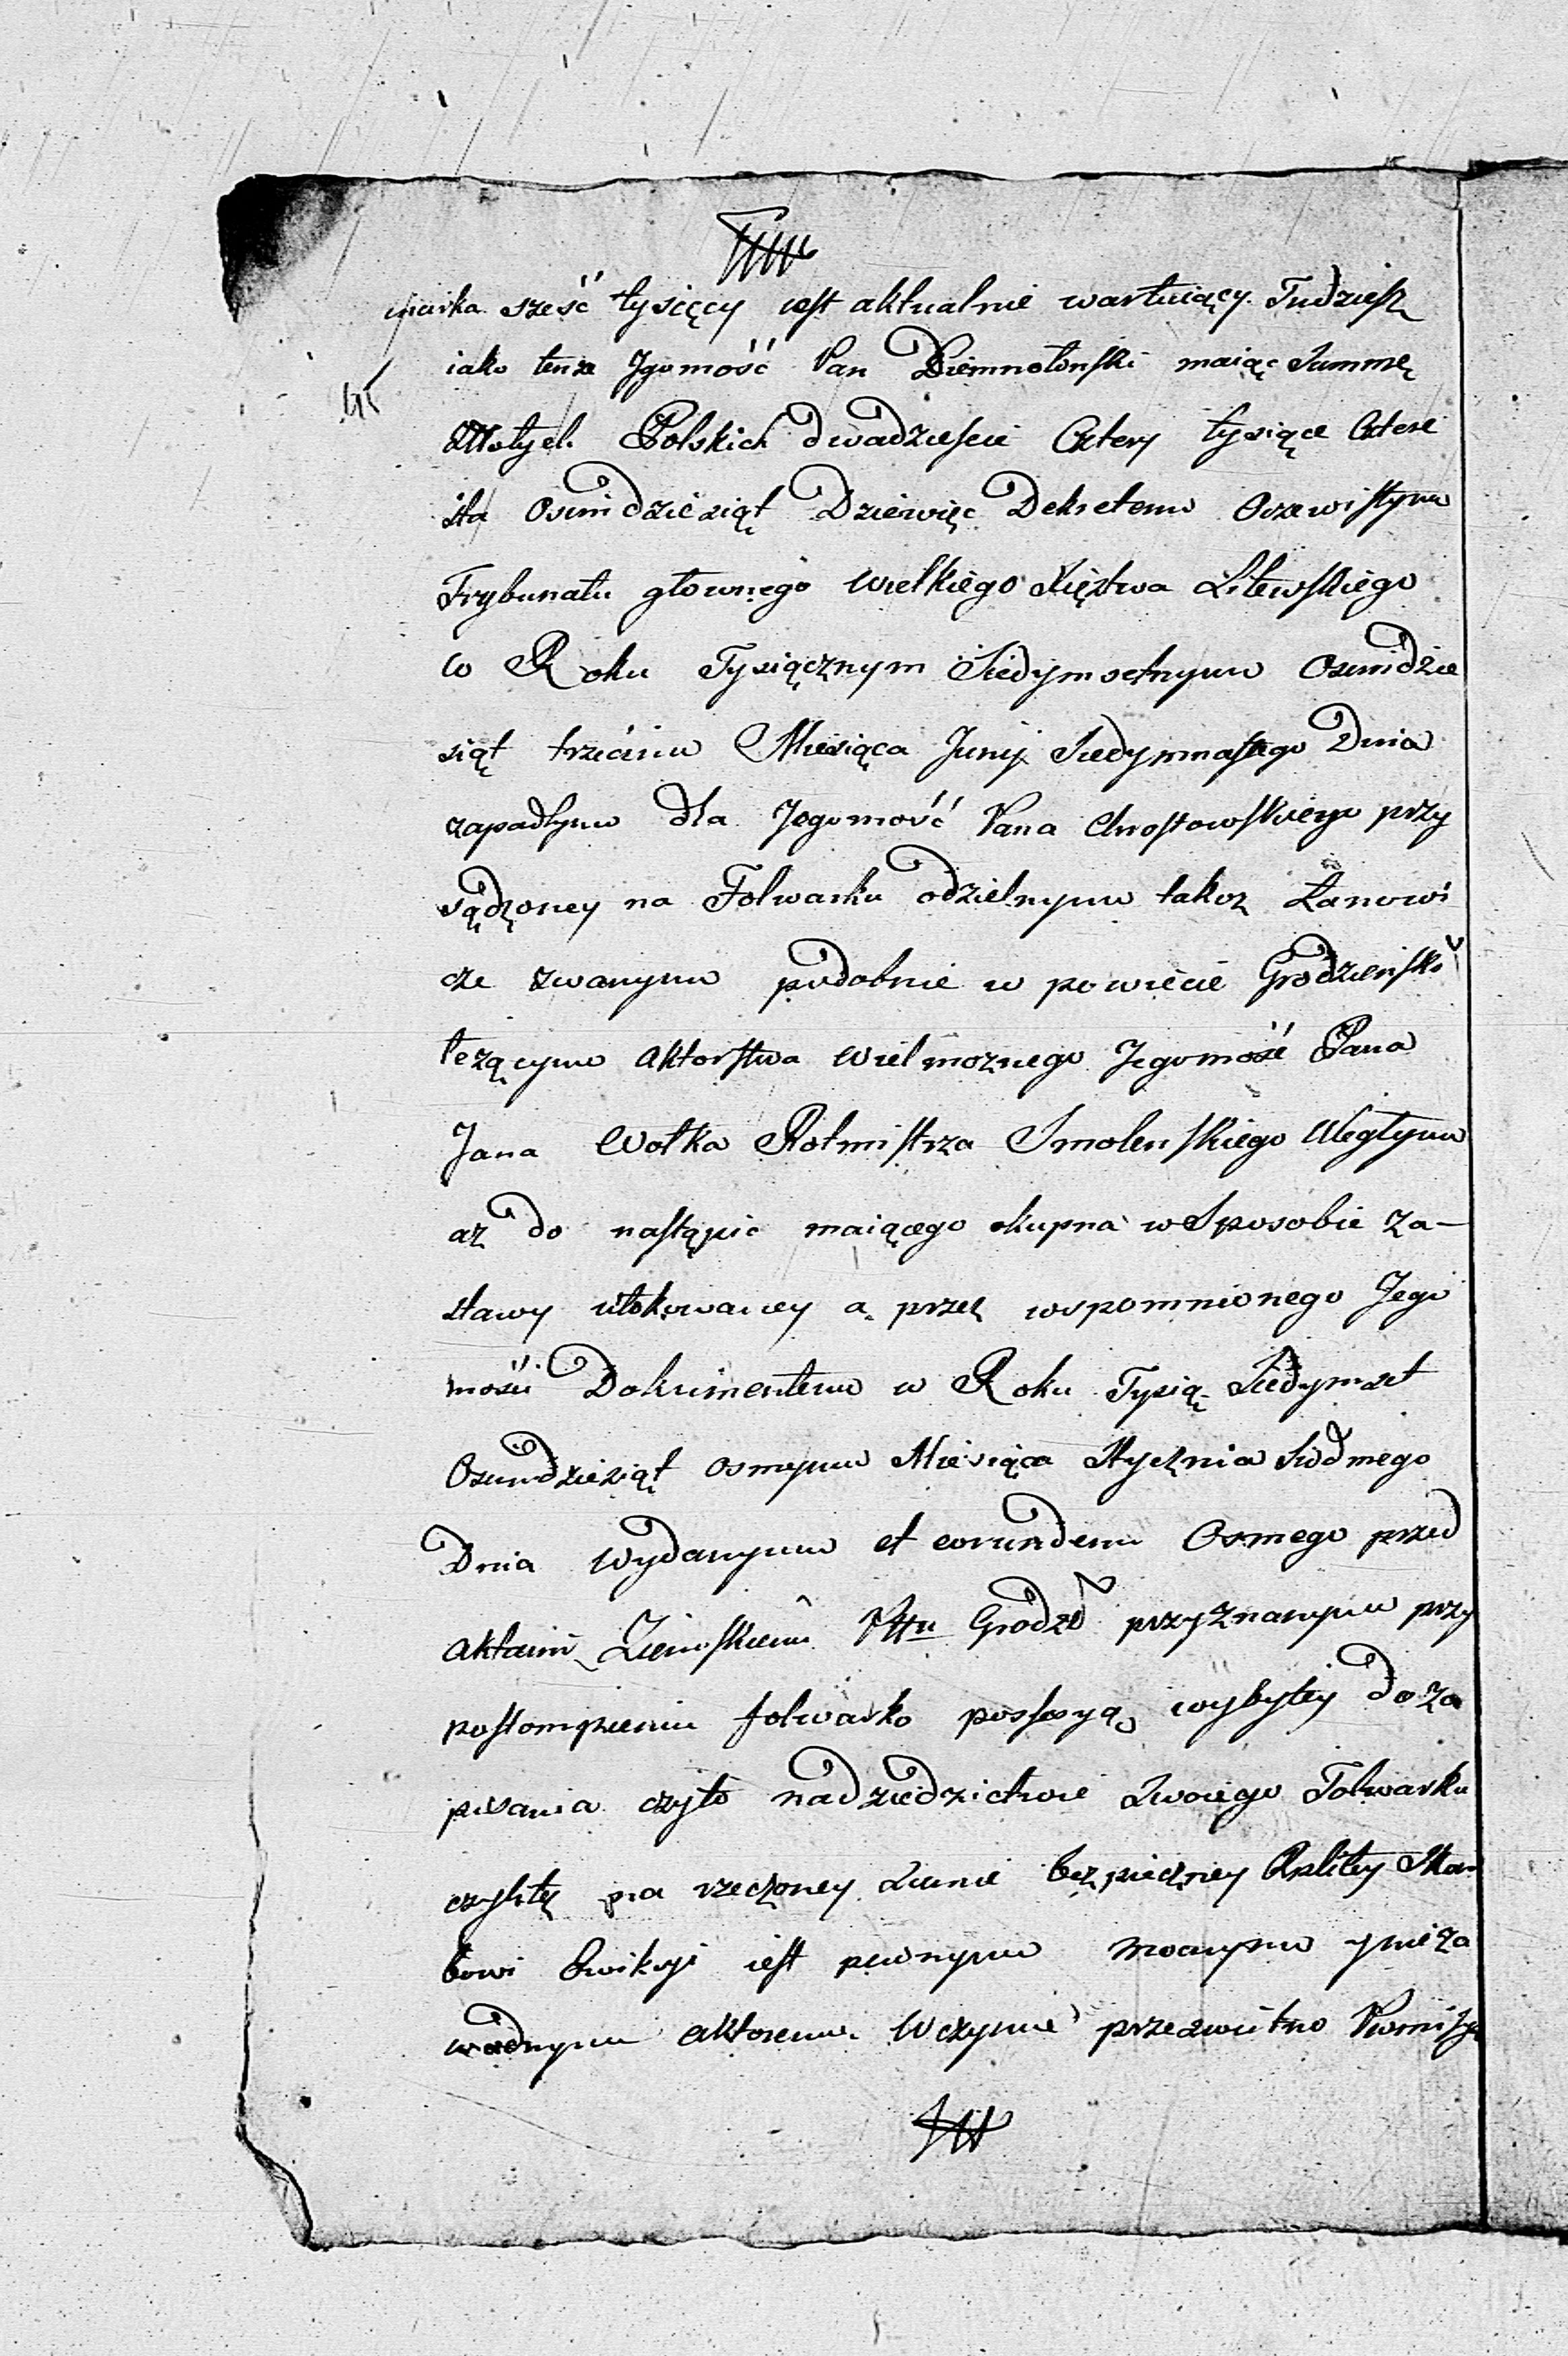 sześć tysięcy iest aktualnie wartuiący. Tudziesz
iako tenże Jgomość Pan maiąc Summę
Złłotych Polskich dwadziescie Cztery tysiące Cztere
sta Osmdziesiąt Dziewięc Dekretem Oczewistym
Trybunału głownego Wielkiego Xięztwa Litewskiego
w Roku Tysiącznym Siedymsetnym Osmdzie
siąt trzecim Miesiąca Junij Siedymnastego Dnia
zapadłym dla Jegomość Pana Chrostowskiego przy
sądzoney na Folwarku odzielnym takoz Łanowi
cze zwanym podobnie w powiecie Grodzieńsko
leżącym aktorstwa Wielmoznego Jegomość Pana
Jana Wołka Rotmistrza Smolenskiego Uległym
aż do nastąpic maiącego okupna w Sposobie za-
stawy ulokowaney a przez wspomnionego Jego
mości Dokumentem w Roku Tysią. Siedymset
Osmdziesiąt osmym Miesiąca Stycznia Siodmego
Dnia Wydanym et eorundem Osmego przed
aktami Ziemskiemi Pttu Grodzo przyznanym przy
postompieniu folwarko possesyą wysbytey do za
pisania czyto nadziedzictwie Swoiego Folwarku
czyliteż na rzeczoney Sumie bezpieczney Rplitey Skar
bowi Ewikcyi iest pewnym mocnym y nieza
wodnym aktorem. Wczymie przeswietno